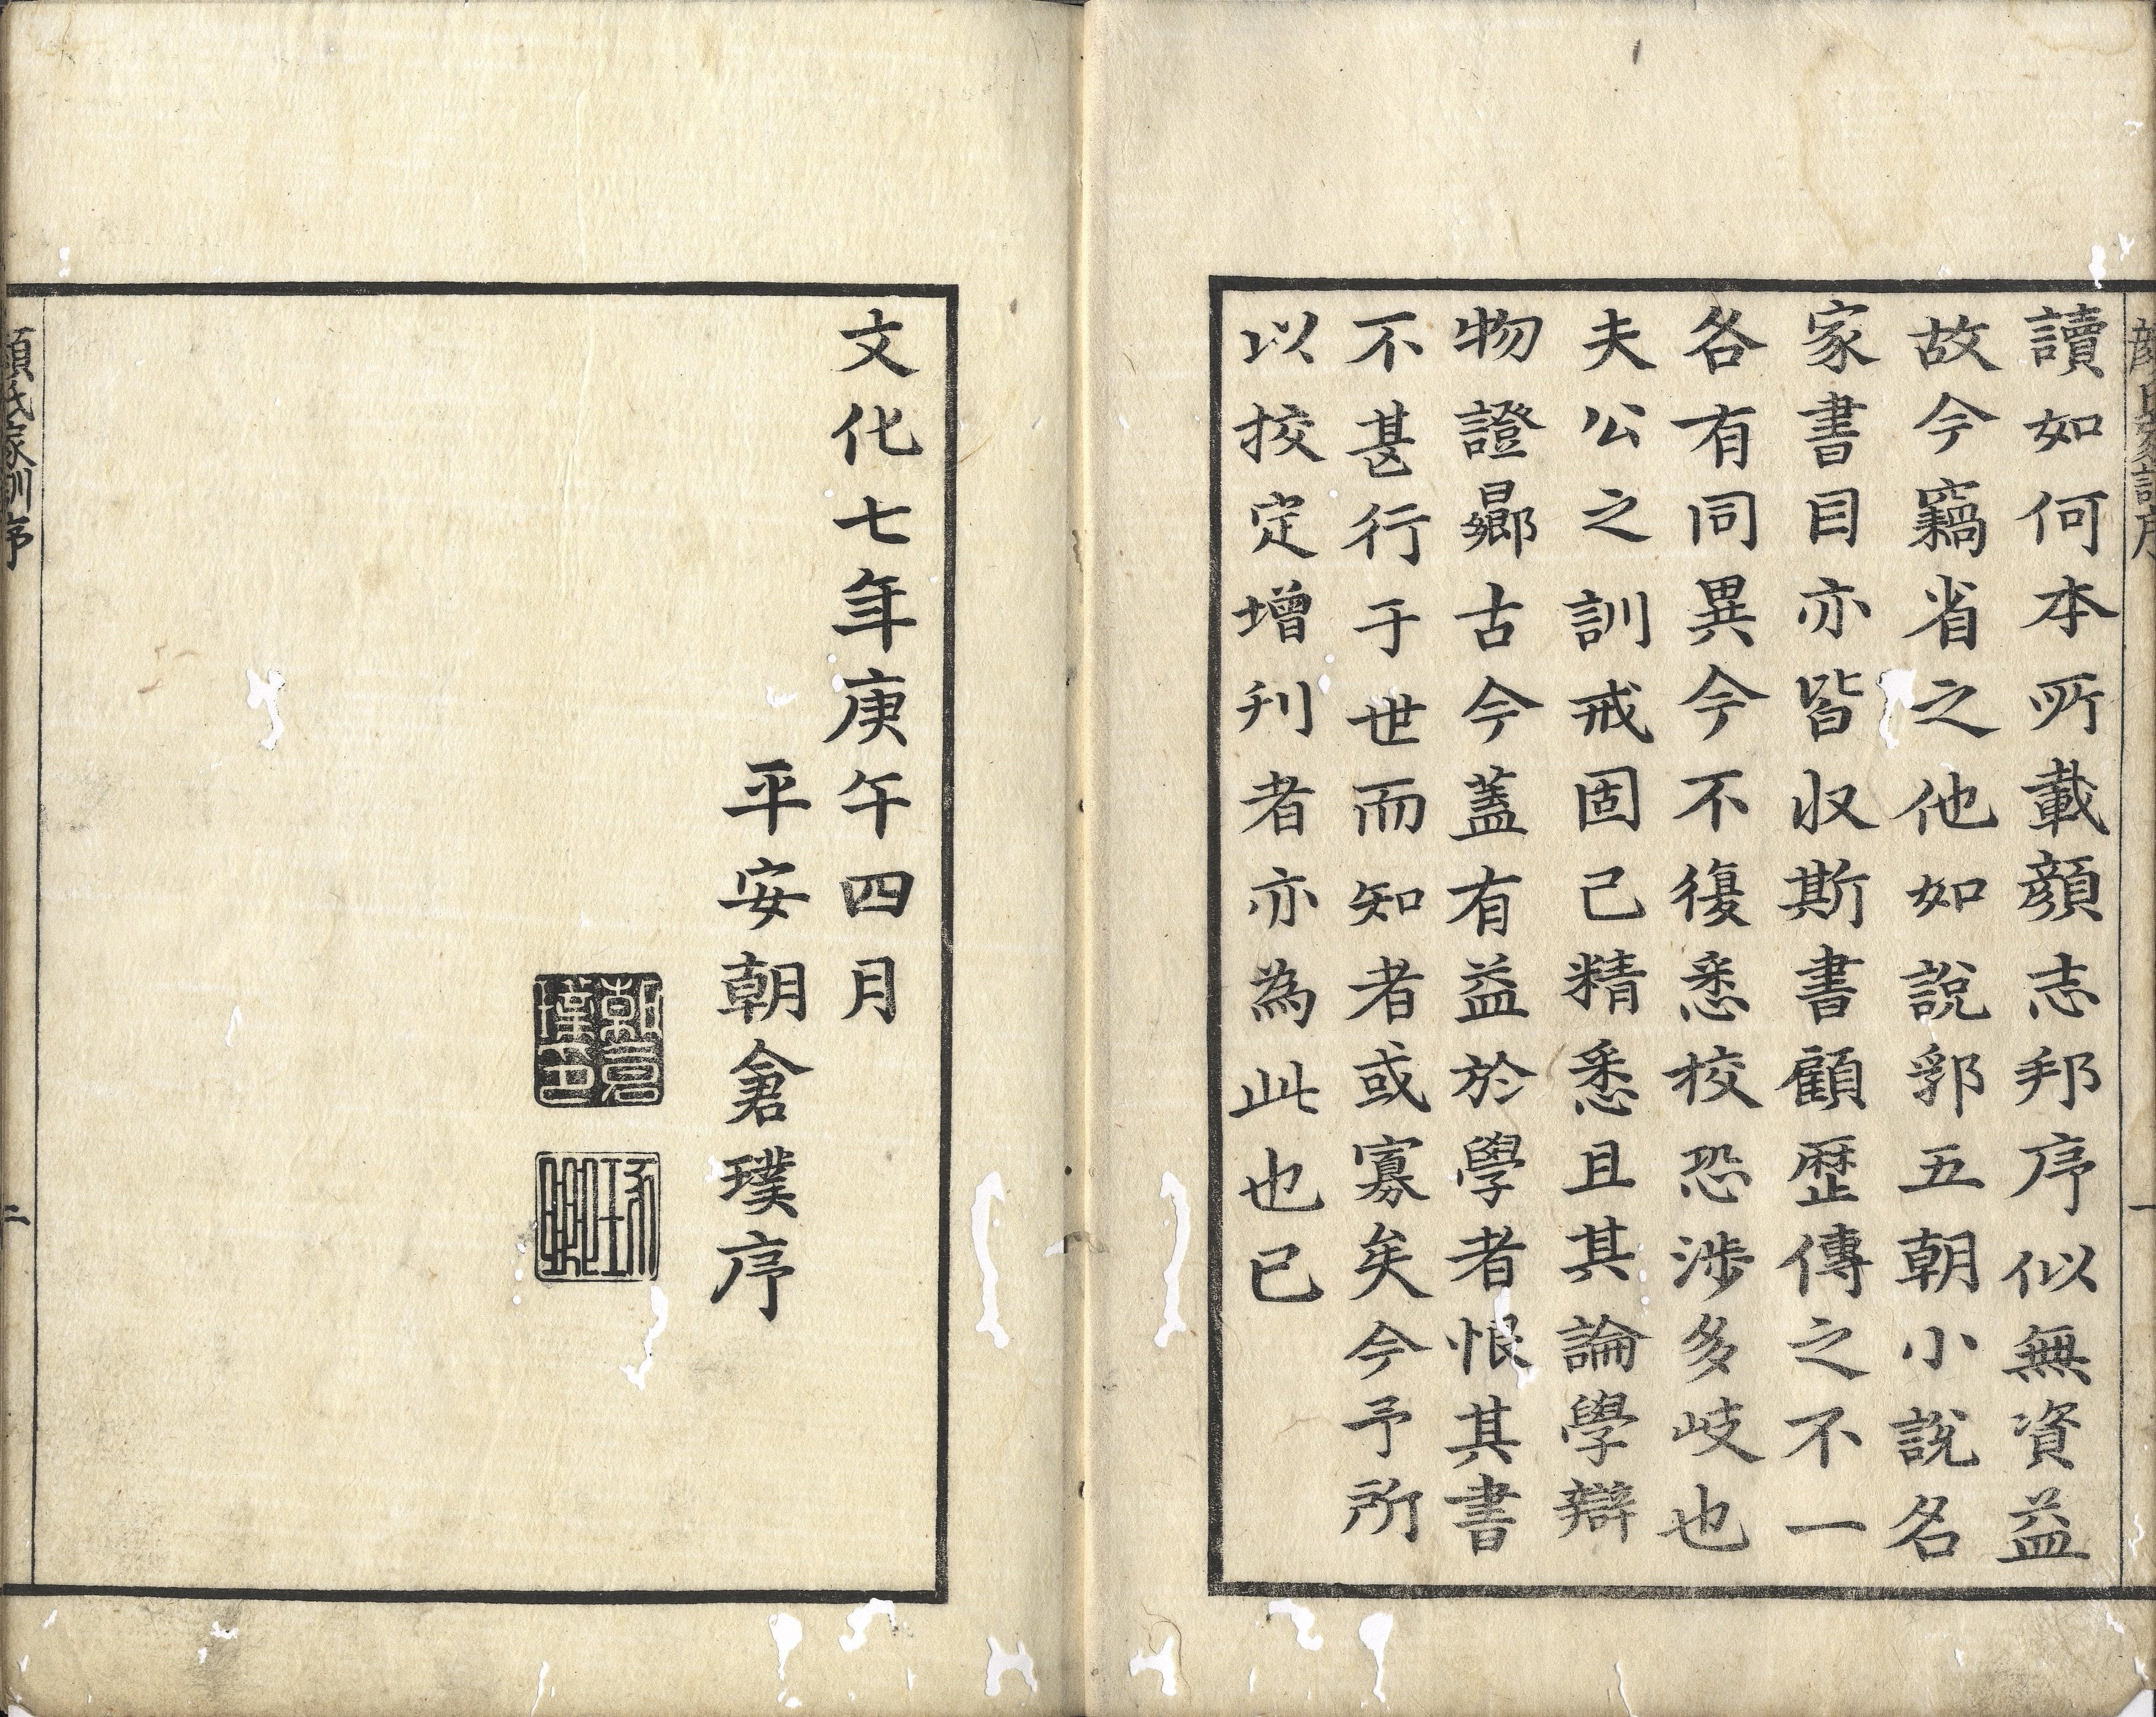 顔氏家訓序
一
讀如何本所載顔志邦序似無資益
故今竊省之他如說郛五朝小說名
家書目亦皆収斯書顧歴傳之不一
各有同異今不復悉挍恐涉多岐也
夫公之訓戒固已精悉且其論學辯
物證曏古今蓋有益於學者恨其書
不甚行于世而知者或寡矣今予所
以挍定增刋者亦為此也已
文化七年庚午四月
平安朝倉璞序
朝倉璞印
顔氏家訓序
二